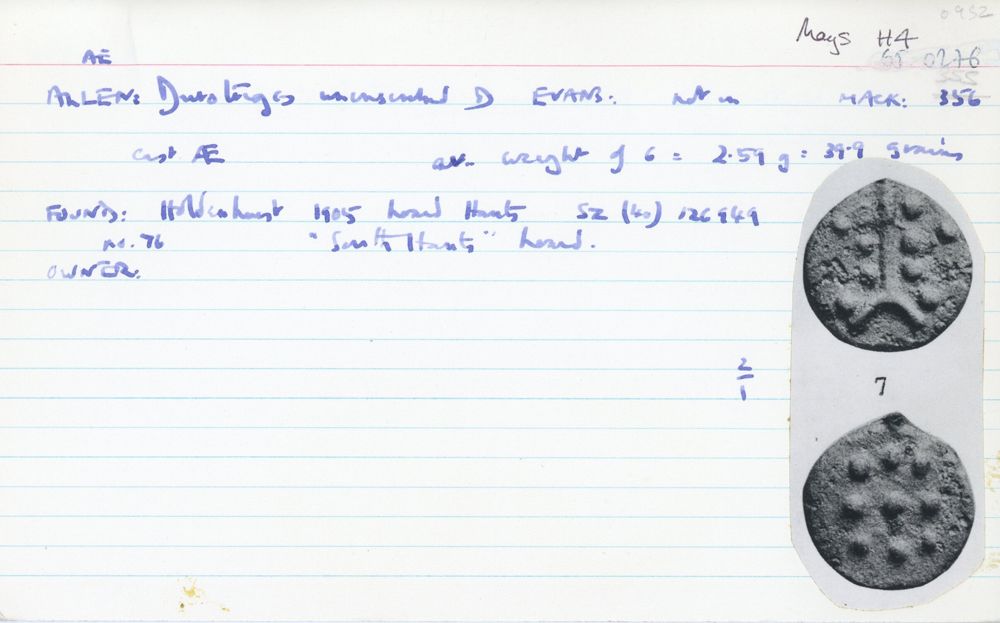 0952
Mays H4
AE
65 0276
355
ALLEN: Durotriges uninscribed D EVANS: not in MACK: 356
cast Æ av. weight of 6 = 2.59 g = 39.9 grains
FOUND: Holdenhurst 1905 hoard Hants SZ (40) 126949
no. 76 "South Hants" hoard.
OWNER:
2
1
7